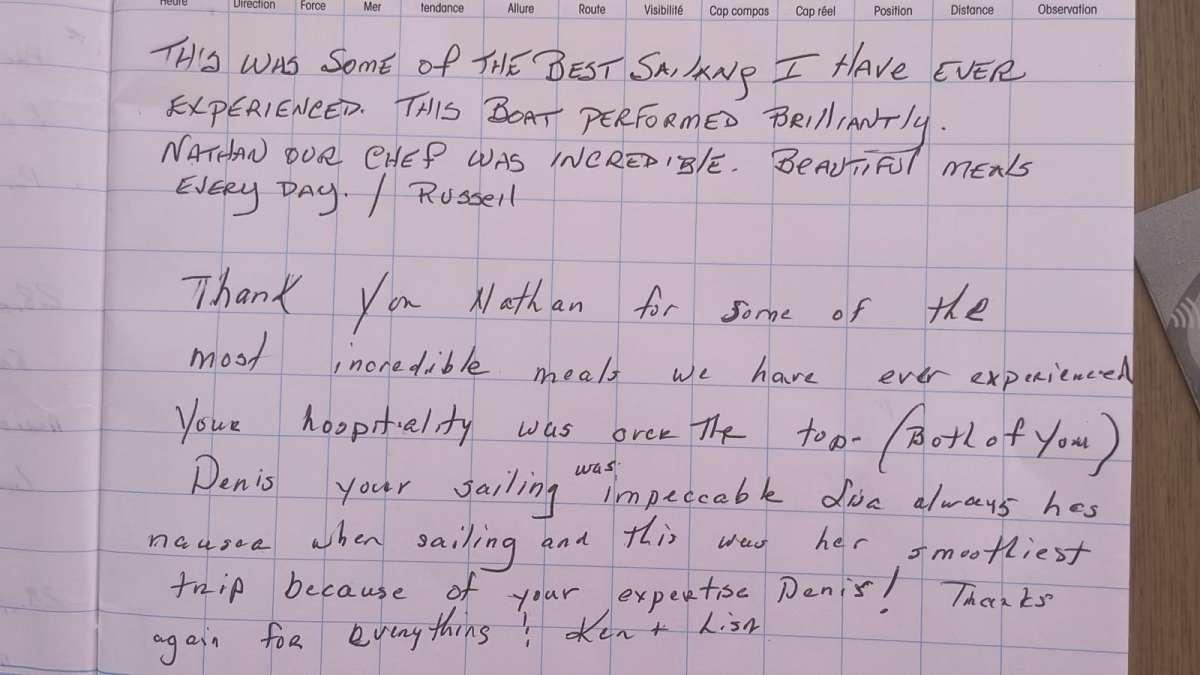 Heure Direction Force Mer tendance Allure Route Visibilité Cap compas Cap réel Position Distance Observation
THIS WAS SOME of THE BEST SAILING I HAVE EVER
EXPERIENCED. THIS BOAT PERFORMED BRILLIANTLY.
NATHAN OUR CHEF WAS INCREDIBLE. BEAUTIFUL MEALS
EVERY DAY. / RUSSELL
Thank You Nathan for some of the
most incredible meals we have ever experienced
Your hospitality was over The top- (Both of You)
Denis your sailing was impeccable Lisa always has
nausea when sailing and this was her smoothest
trip because of your expertise Denis! Thanks
again for everything! Ken + Lisa